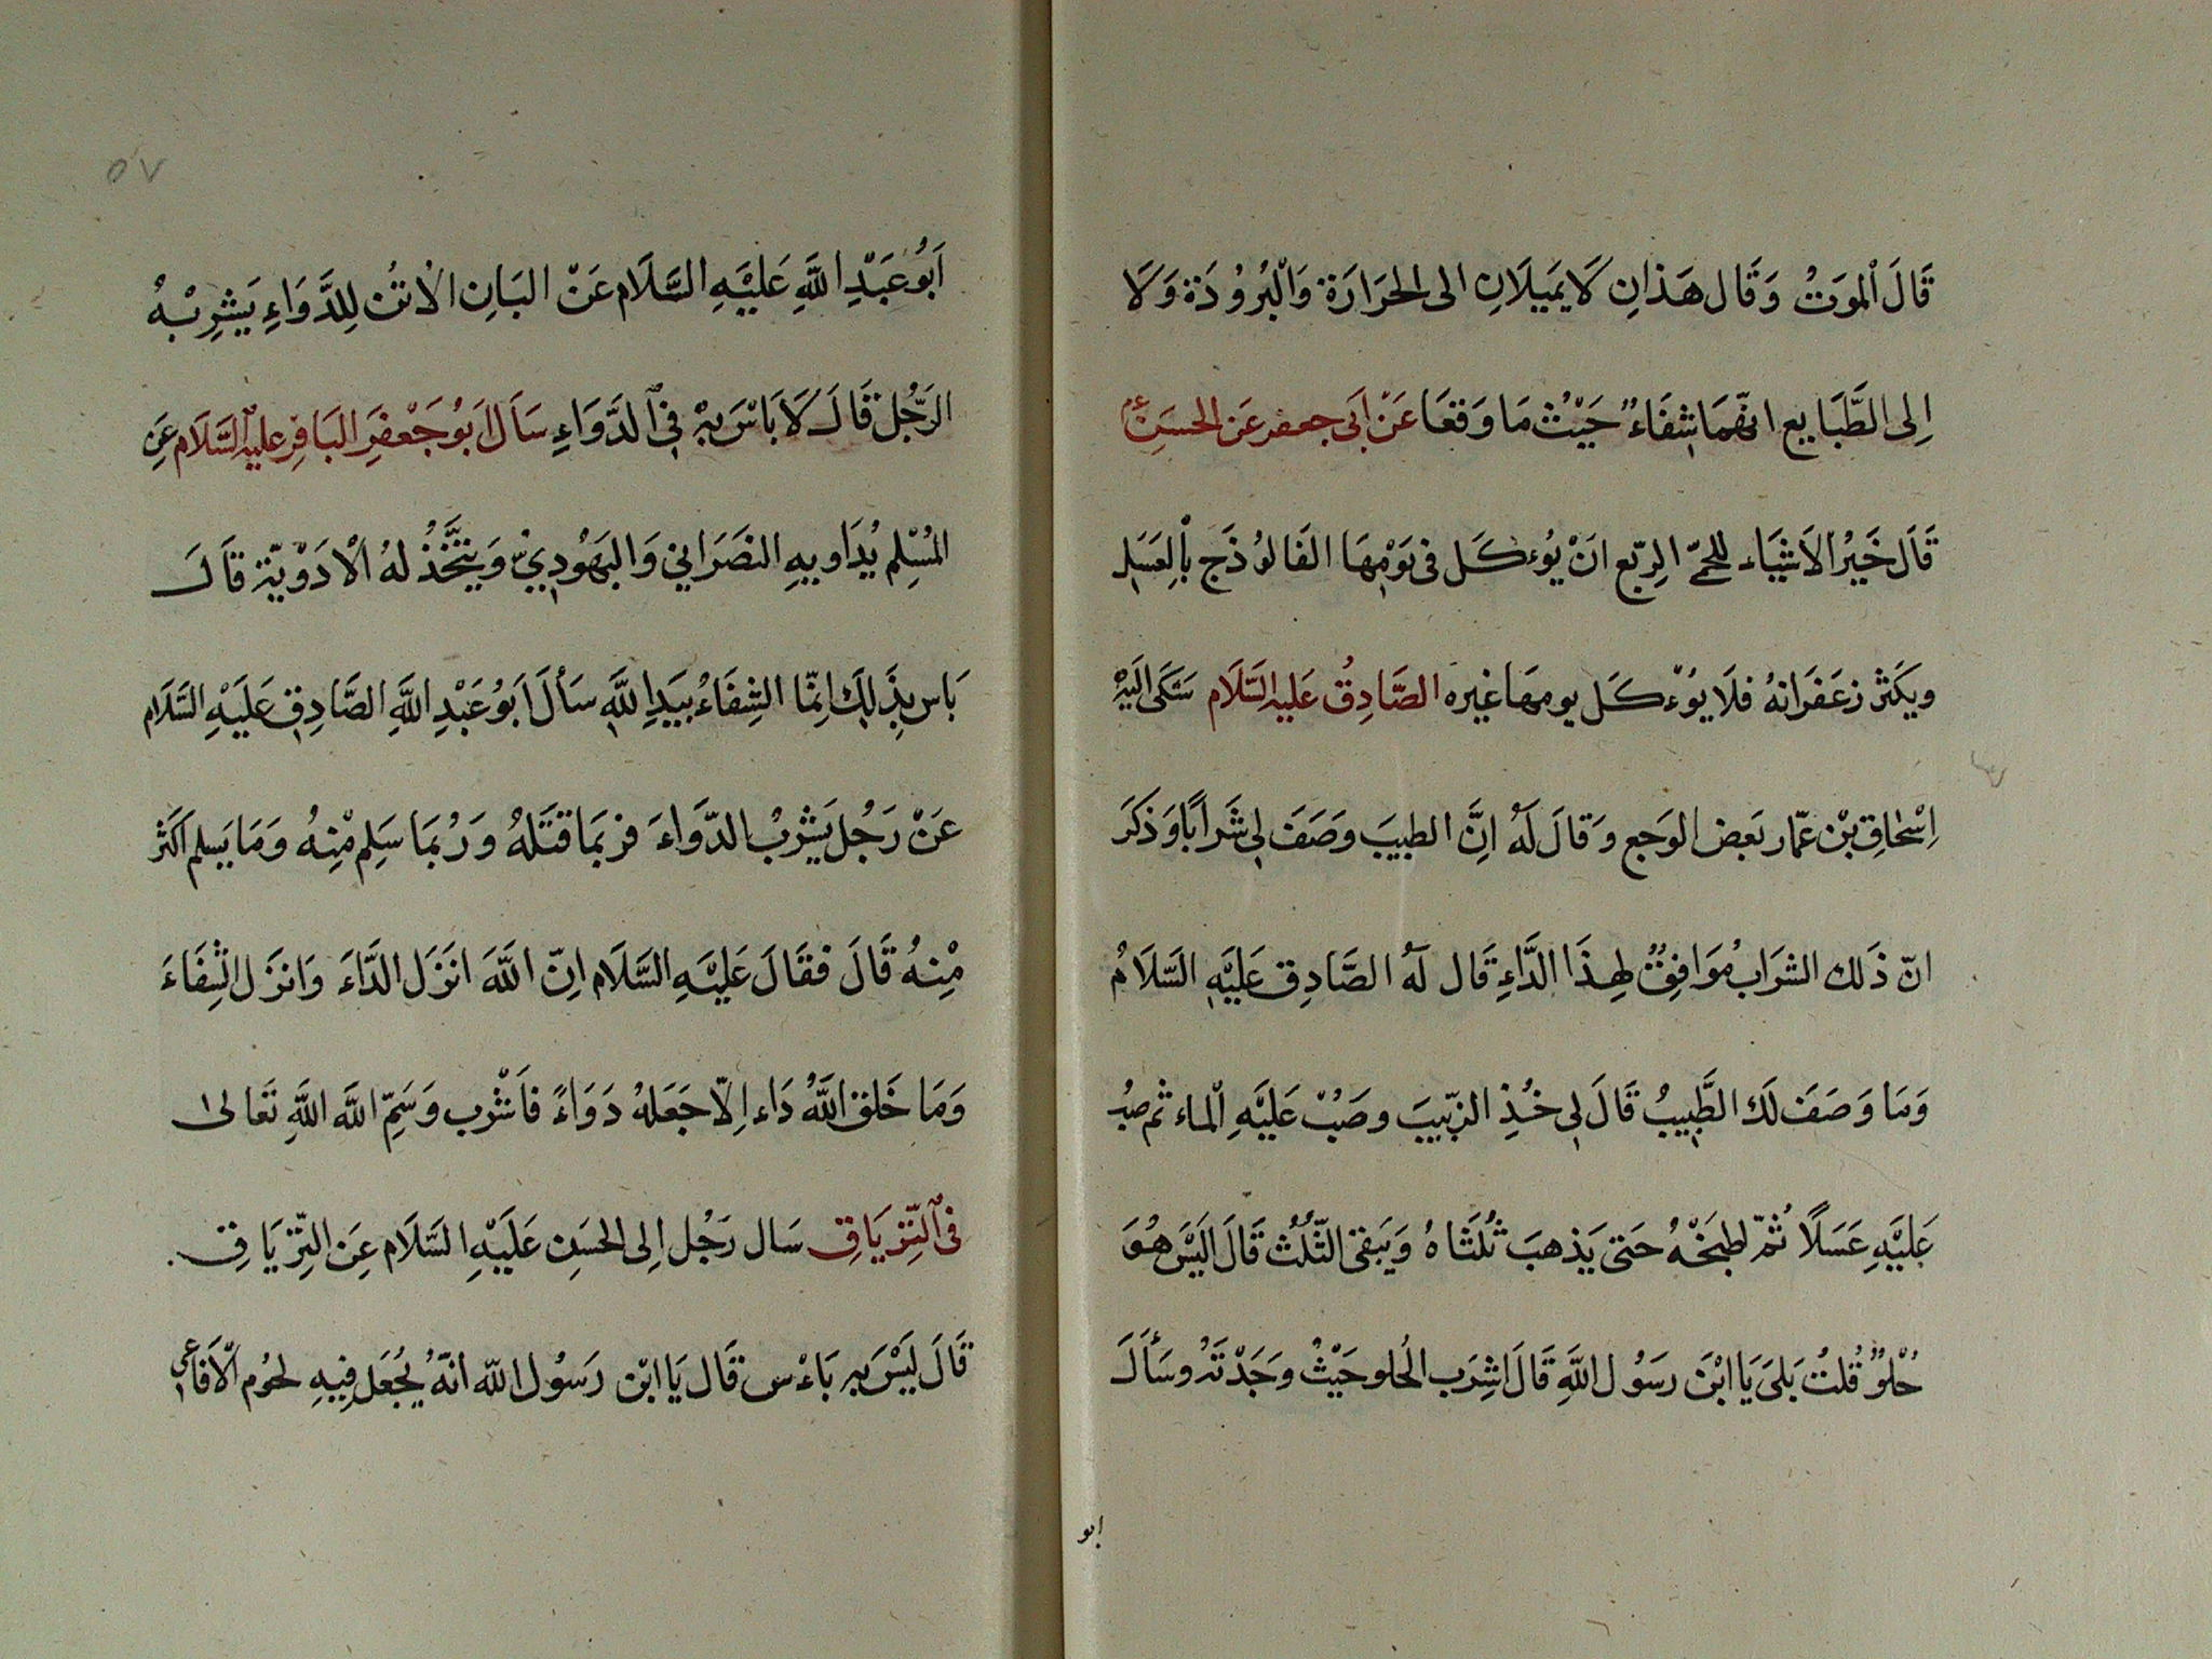 قَالَ الْموَتُ وَقَال هَذانِ لَا يَميَلَانِ الى الحَرَارَة وَالْبُرُودَة وَلَا
اِلى الطَّبَايع انّهمَا شِفَاءٌ حَيْثُ مَا وَقعَا عَنْ اَبى جعفر عَن الحسَنِ ع
قَالَ خَيْرُ الاَشيَاء للحمّى الرِبّع انَ يُوءكَل فى يَوْمِهَا الفَالوُذَج بِالعَسَل
ويكَثر زعَفرَانهُ فلَا يوُءكَل يومهَا غيره الصَّادِقُ عَليهِ السَّلَام شَكى اليَهْ
اِسْحٰاق بْن عمّار بَعض الوَجع وَقالَ لَهُ اِنَّ الطبيبَ وصَفَ لى شَراَبًا وَذكَرَ
انّ ذَلك الشرَابُ مُوَافِقٌ لِهذَا الدَّاءِ قَال لَهُ الصَّادِق عَليَهِ السَّلَامُ
وَمَا وَصَفَ لَك الطَّبِيبُ قَالَ لى خُذِ الزّبيبَ وصَبّ عَليَهِ الْماء ثم صبّ
عَليَهِ عَسَلًا ثمّ اطبخْهُ حَتى يَذهبَ ثُلثَاهُ وَيَبقى الثّلُث قَالَ اَليَسَ هُوَ
حُلْوٌ قُلتُ بَلىَ يَا ابْنَ رسَوُل اللَّهِ قَالَ اشِرَب الحُلو حَيْثُ وجَدْتَهُ وسَأَلَ
ابو
٥٧
اَبُو عَبْدِ اللَّهِ عَليَهِ السَّلَام عَنْ البَانِ الاُتن لِلدَّوَاءِ يَشرِبهُ
الرّجُل قَالَ لَا بَاسَ بِهْ فِى الدَّوَاءِ سَاَلَ اَبوُ جَعْفرَ البَاقِر عليهِ السَّلَام عَنِ
المُسْلِم يُدَاوِيهِ النصَرَاني وَاليَهُودِيّ وَيتَّخذُ لهُ الْادَوْيَة قاَلَ
بَاس بِذَلِكَ اِنمّا الشِفَاءُ بيَدِ اللَّهِ سَألَ اَبوُ عَبْدِ اللَّهِ الصَّادِق عَلَيْهِ السَّلَام
عَنْ رَجُل يَشربُ الدّوَاءَ فربمَا قتَلهُ وَرُبمَا سَلِم مْنِهُ وَمَا يَسلم اكَثر
مْنِهُ قَالَ فقَالَ عَليَهِ السَّلَام اِنّ اللَّهَ انَزَل الدَّاءَ وَانزَل الشِفَاءَ
وَمَا خَلق اللَّهُ دَاء اِلّا جَعَلهُ دَوَاءً فاَشْرب وَسَمِّ اللَّه اللَّهِ تَعَالىٰ
فى التّريَاقِ سَال رَجُل اِلى الحسَنِ عَلَيْهِ السَّلَام عَنِ التِّريَاق.
قَالَ ليَسَ بهِ بَاءْس قَال يَا ابّن رَسوُل اللّه انَّهُ يُجعَل فِيهِ لحوُم الَافاَعى